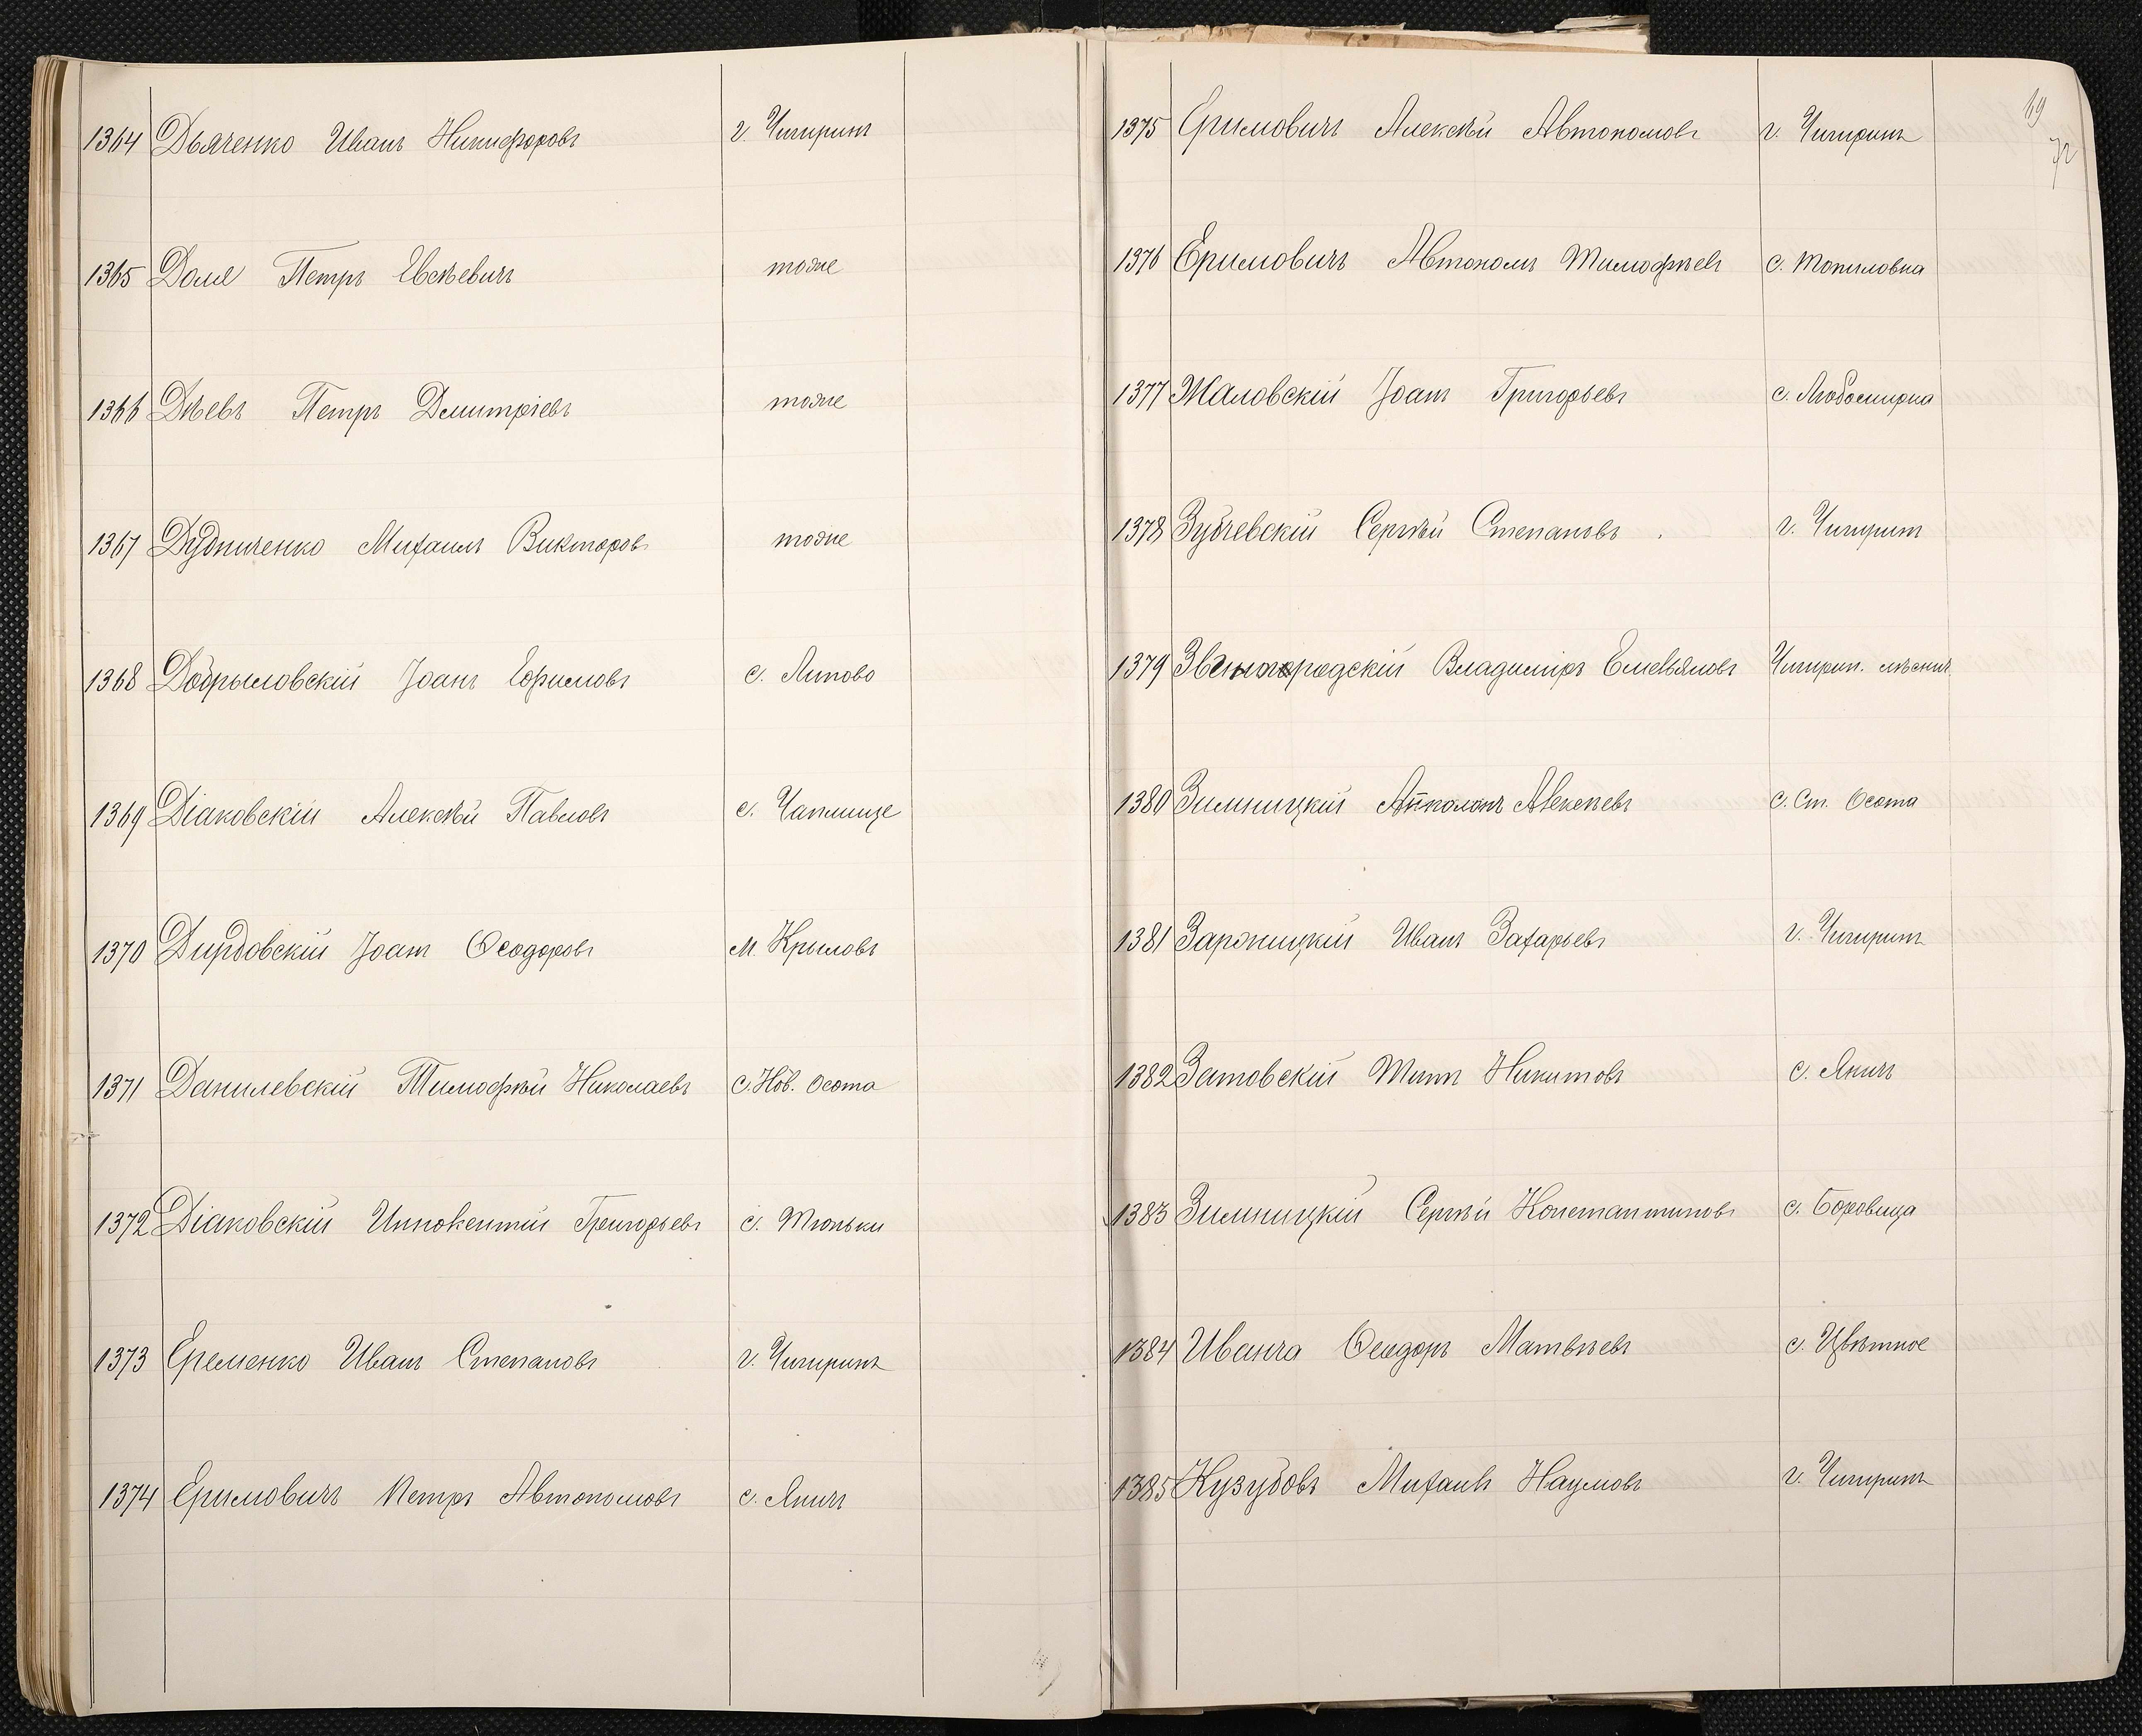 1364 Дьяченко Иванъ Никифоровъ г. Чигиринъ
1365 Доля Петръ Евсѣевичъ тоже
1366 Дѣевъ Петръ Дмитріевъ тоже
1367 Дудниченко Михаилъ Викторовъ тоже
1368 Добрыловскій Іоанъ Ефимовъ с. Липово
1369 Діаковскій Алексѣй Павловъ с. Чаплище
1370 Дирдовскій Іоанъ Ѳеодоровъ м. Крыловъ
1371 Данилевскій Тимофѣй Николаевъ с. Нов. Осота
1372 Діаковскій Иннокентій Григорьевъ с. Тюньки
1373 Еременко Иванъ Степановъ г. Чигиринъ
1374 Еримовичъ Петръ Автономовъ с. Яничъ
69
72
1375 Еримовичъ Алексѣй Автономовъ г. Чигиринъ
1376 Еримовичъ Автономъ Тимофѣевъ с. Топиловка
1377 Жаловскій Іоанъ Григорьевъ с. Любомирка
1378 Зубчевскій Сергѣй Степановъ г. Чигиринъ
1379 Звенигородскій Владиміръ Емельяновъ Чигирин. лѣснич.
1380 Зимницкій Апполонъ Алексѣевъ с. Ст. Осота
1381 Зарожицкій Иванъ Захарьевъ г. Чигиринъ
1382 Затовскій Титъ Никитовъ с. Яничъ
1383 Зимницкій Сергѣй Константиновъ с. Боровица
1384 Иванча Ѳеодоръ Матвѣевъ с. Цвѣтное
1385 Кузубовъ Михаилъ Наумовъ г. Чигиринъ